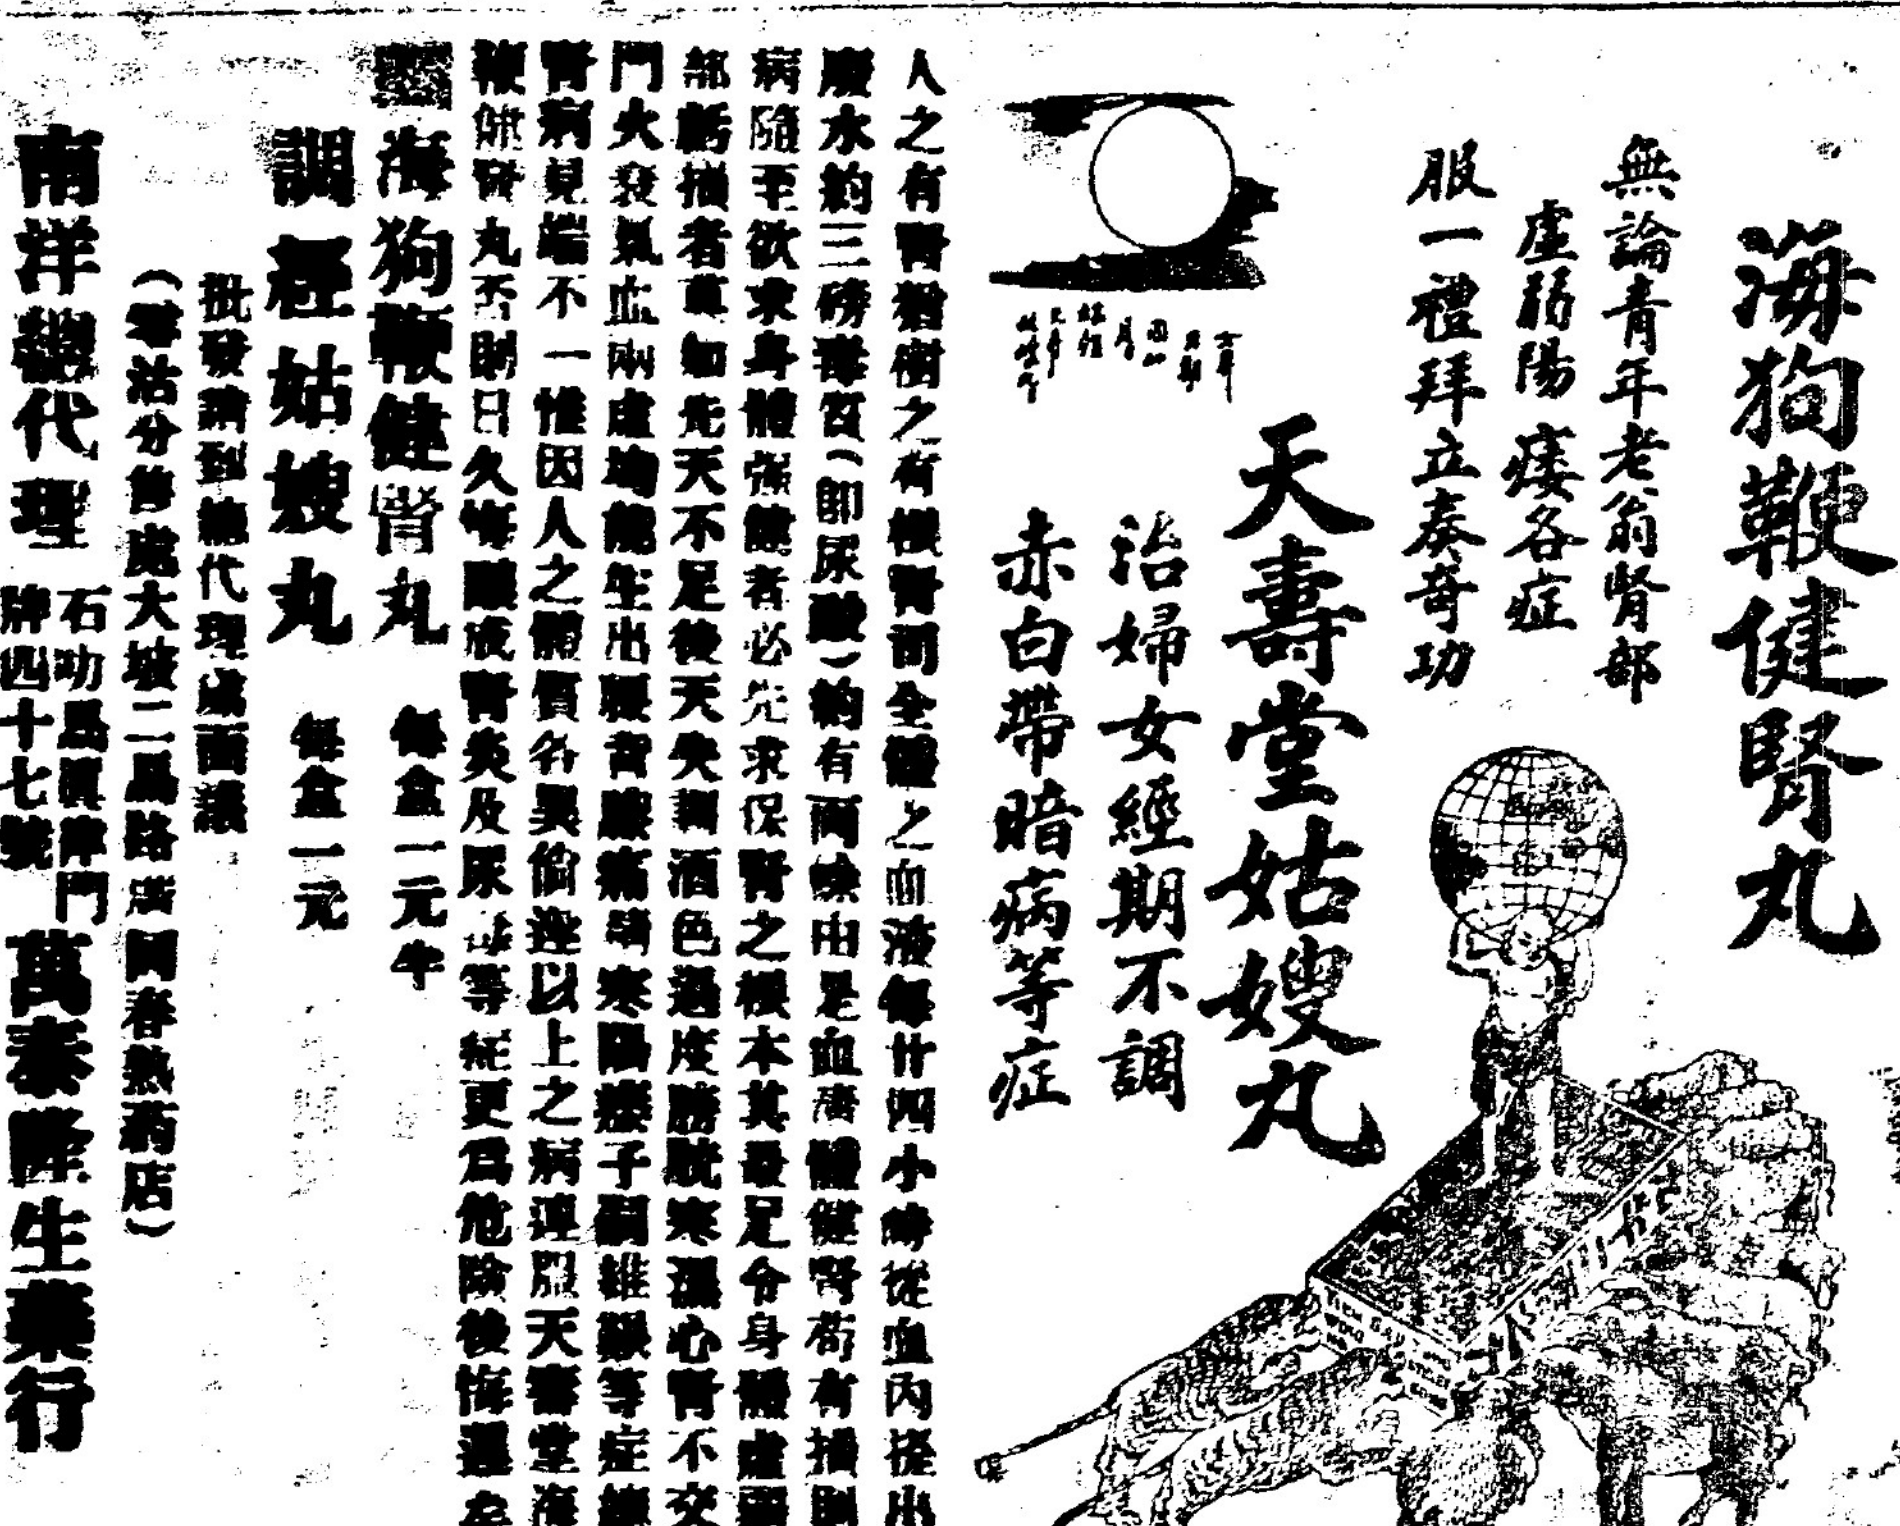 海狗鞭健腎丸
無論青年老翁腎部
虛弱陽痿各症
服一禮拜立奏奇功
天壽堂姑嫂丸
治婦女經期不調
赤白帶暗病等症
人之有腎猶樹之有根腎司全體之血液每廿四小時從血內提出
廢水約三磅毒質(即尿酸)約有兩 由是血 體健腎若有損則
病隨至欲求身體強健者必先求保腎之根本其最足令身體虛弱
部虧損者莫如先天不足後天失調酒色過度膀胱寒濕心腎不交
門火衰氣血兩虛均能生出腰背酸痛 寒陽痿子嗣維艱等症
腎病見端不一惟因人之體質各異倘遊以上之病速服天壽堂海
鞭健腎丸否則日久 腎炎及尿毒等症更為危險後悔遲矣
海狗鞭健腎丸 每盒二元半
調經姑嫂丸 每盒一元
批發請到總代理處面議
(零沽分售處大坡二馬路 同春熟药店)
南洋總代理 石叻馬真律門牌四十七號 萬泰隆生藥行